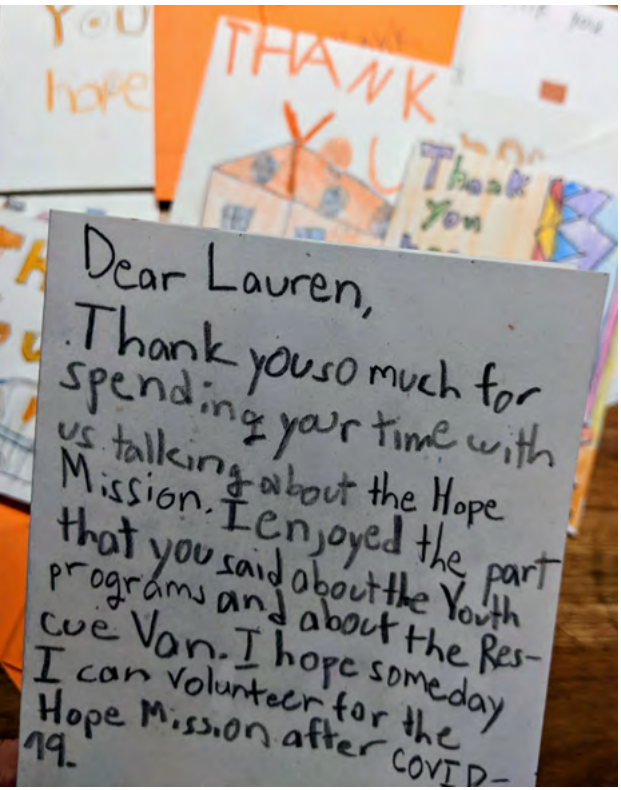 YOU
hope
THANK
YOU
Thank
you
Dear Lauren,
Thank you so much for
spending your time with
us talking about the Hope
Mission. I enjoyed the part
that you said about the Youth
programs and about the Res-
cue Van. I hope someday
I can volunteer for the
Hope Mission after COVID-
19.